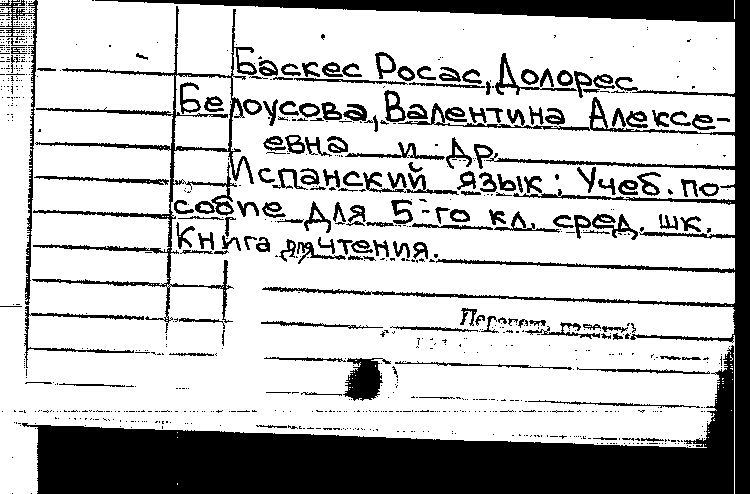 Баскес Росас, Долорес
Белоусова, Валентина Алексе-
евна и др.
Испанский язык: Учеб. по-
собие для 5-го кл. сред. шк.
Книга для чтения.